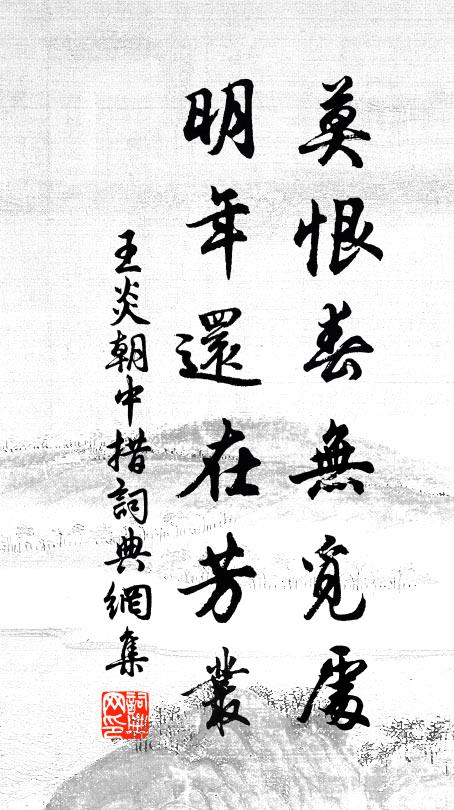 莫恨春無覓處
明年還在芳叢
王炎朝中措詞典網集